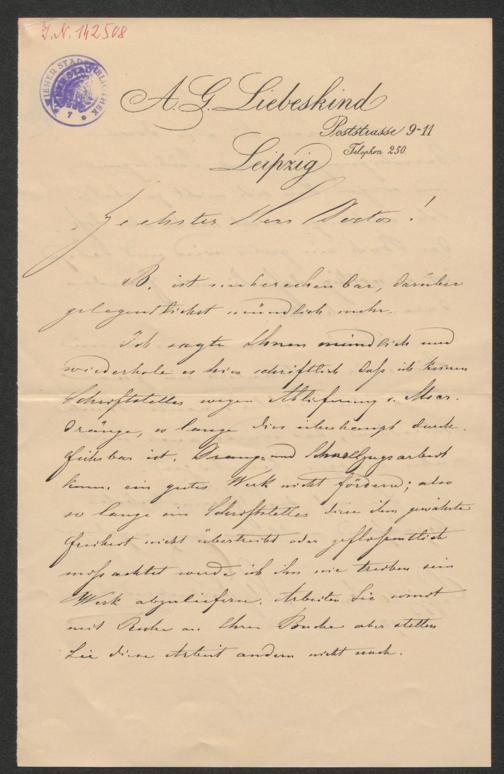 I. N. 142508
WIENER STADTBIBLIOTHEK
A. G. Liebeskind
Poststrasse 9-11
Telephon 250
Leipzig
Geehrter Herr Doctor!
B. ist unberechenbar, darüber
gelegentlichst mündlich mehr.
Ich sagte Ihnen mündlich und
wiederhole es hier schriftlich daß ich keinen
Schriftsteller wegen Ablieferung s. Mscr.
dränge, so lange dies überhaupt durch-
führbar ist. Drang- und Schnellzugsarbeit
kann ein gutes Werk nicht fördern; also
so lange ein Schriftsteller diese ihm gewährte
Freiheit nicht übertreibt oder geflissentlich
mißachtet werde ich ihn nie treiben sein
Werk abzuliefern. Arbeiten Sie somit
mit Ruhe an Ihrem Buche aber stellen
Sie diese Arbeit andern nicht nach.